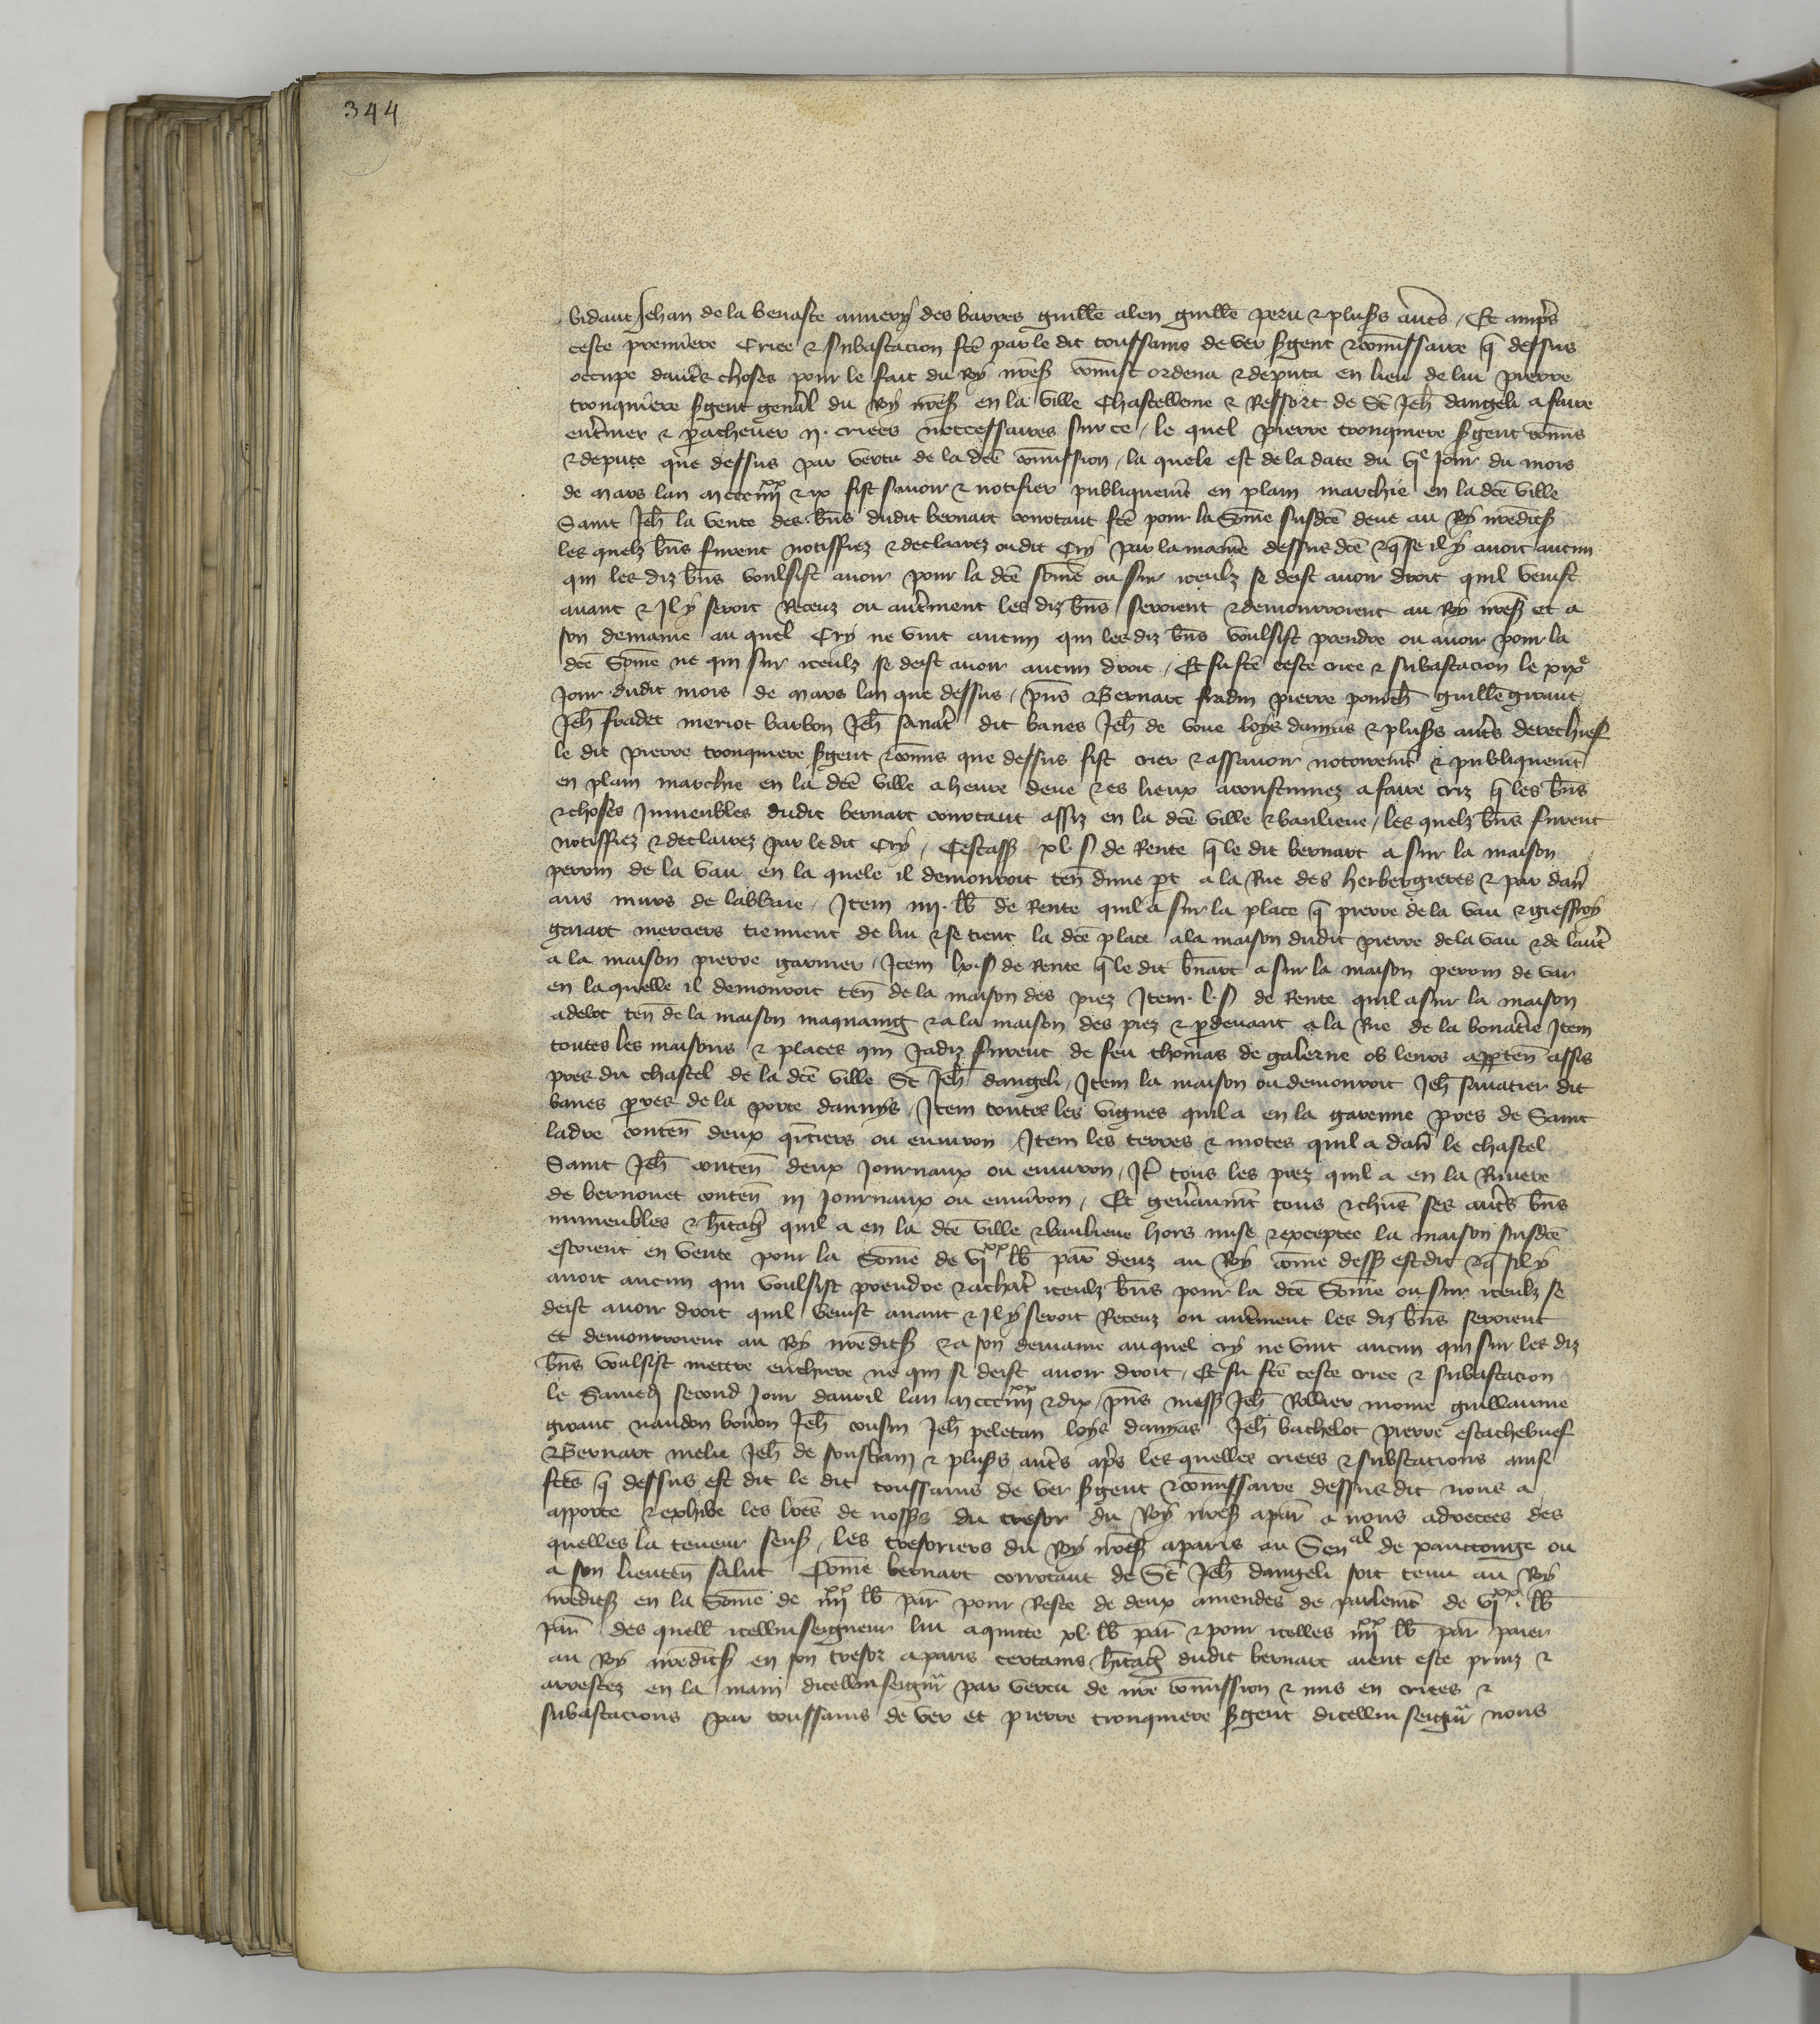 344
vidaut Jehan de la venaste aimery des barres guille alen guille peru & plusrs autres / Et amprs
ceste premiere Criee & subastacion fcē par le dit toussains de ver sgent & comissaire q̄ dessus
occupe dautres choses pour le fait du Roy nres comist ordena & deputa en lieu de lui pierre
tronquiere sgent genal du Roy nres en la ville Chastellenie & Ressort de St Jeh dangeli a faire
enteriner & pachever II. criees neccessaires sur ce / le quel pierre tronquiere sgent comis
& depute que dessus par vertu de la dcē comission / la quele est de la date du VIe Jour du mois
de mars lan mccciiiixx & ix fist savoir & notifier publiquemt en plain marchie en la dcē ville
Saint Jeh la vente des bns dudit bernart coutaut fcē pour la Some susdcē deue au Roy nredits
les quelz bns furent notiffiez & declairez oudit Cry par la maniere dessus dcē & q̄ se il y avoit aucun
qui les diz bns voulsist avoir pour la dcē some ou sur iceulz se deist avoir droit quil venist
avant & Il y seroit Receuz ou autrement les diz bns seroient & demourroient au Roy nres et a
son demaine au quel Cry ne vint aucun qui les diz bns voulsist prendre ou avoir pour la
dcē Some ne qui sur iceulz se deist avoir aucun droit / Et fu fcē ceste criee & subastacion le xixe
Jour dudit mois de mars lan que dessus / pns Bernart fradin pierre ponch guille giraut
Jeh fradet meriot barbon Jeh savatr dit banes Jeh de voue loys damas & plusrs autres derechief
le dit pierre tronquiere sgent & comis que dessus fist crier & assavoir notoiremt & publiquemt
en plain marchie en la dcē ville a heure deue & es lieux acoustumez a faire criz q̄ les bns
& choses Inmeubles dudit bernart coutaut assiz en la dcē ville & banlieue / les quelz bns furent
notiffiez & declairez par le dit Cry / Cestass xl. s de Rente q̄ le dit bernart a sur la maison
perrin de la vau en la quele il demouroit ten dune pt a la Rue des herbergieres & par darr
aus murs de labbaie / Item IIII. lb de Rente quil a sur la place q̄ pierre de la vau & gieffroy
gaiart merciers tiennent de lui & se tient la dcē place a la maison dudit pierre de la vau & de lautr
a la maison pierre garnier / Item lx. s de Rente q̄ le dit bnart a sur la maison perrin de var
en la quelle il demouroit ten de la maison des piez Item. l. s de Rente quil a sur la maison
adelot ten de la maison maquaing & a la maison des piez & pdevant a la Rue de la bonatrie Item
toutes les maisons & places qui Jadiz furent de feu thomas de galerne ob leurs apparten assis
pres du chastel de la dcē ville St Jeh dangeli / Item la maison ou demouroit Jeh savatier dit
banes pres de la porte dannys / Item toutes les vignes quil a en la garenne pres de Saint
ladre conten deux qrtiers ou environ Item les terres & motes quil a darr le chastel
Saint Jeh conten deux Journaux ou environ / Itē tous les prez quil a en la Riviere
de bernouet conten III Journaux ou environ / Et genaumt tous & chuns ses autres bns
inmeubles & hitag quil a en la dcē ville & banlieue hors mise & exceptee la maison susdcē
estoient en vente pour la Some de VIxx lb par deuz au Roy come dess est dit & q̄ sil y
avoit aucun qui voulsist prendre & achatr iceulz bns pour la dcē Some ou sur iceulz se
deist avoir droit quil venist avant & Il y seroit Receuz ou autrement les diz bns seroient
et demourroient au Roy nredits & a son demaine au quel cry ne vint aucun qui sur les diz
bns voulsist mettre enchiere ne qui se deist avoir droit / Et fu fcē ceste criee & subastacion
le Samedi second Jour davril lan mccciiiixx & dix / pns mess Jeh Rollier moine guillaume
giraut naudon boron Jeh cousin Jeh peletan loys damas Jeh bachelot pierre estachebuef
Bernart melu Jeh de soustrain & plusrs autres aprs les quelles criees & subastacions ainsi
fcēs q̄ dessus est dit le dit toussains de ver sgent & comissaire dessus dit nous a
apporte & exhibe les lrēs de nossrs du tresor du Roy nres a par a nous adrecees des
quelles la teneur sens / Les tresoriers du Roy nres a paris au Senal de xanctonge ou
a son lieuten salut Come bernart coutaut de St Jeh dangeli soit tenu au Roy
nredits en la Some de IIIIxx lb par pour Reste de deux amendes de parlemt de VIxx. lb
par des quell icellui seigneur lui a quitte xl. lb par & pour icelles IIIIxx lb par paier
au Roy nredits en son tresor a paris certains hitag dudit bernart aient este prinz &
arrestez en la main dicellui seigneur par vertu de nre comission & mis en criees &
subastacions par toussains de ver et pierre tronquiere sgent dicellui seigneur nous